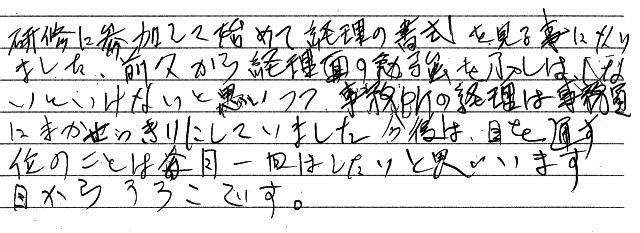 研修に参加して始めて経理の書式を見る事になり
ました、前々から経理面の勉強を少しはしな
いといけないと思いつつ事務所の経理は事務員
にまかせっきりにしていました今後は、目を通す
位のことは毎月一回はしたいと思います
目からうろこです。